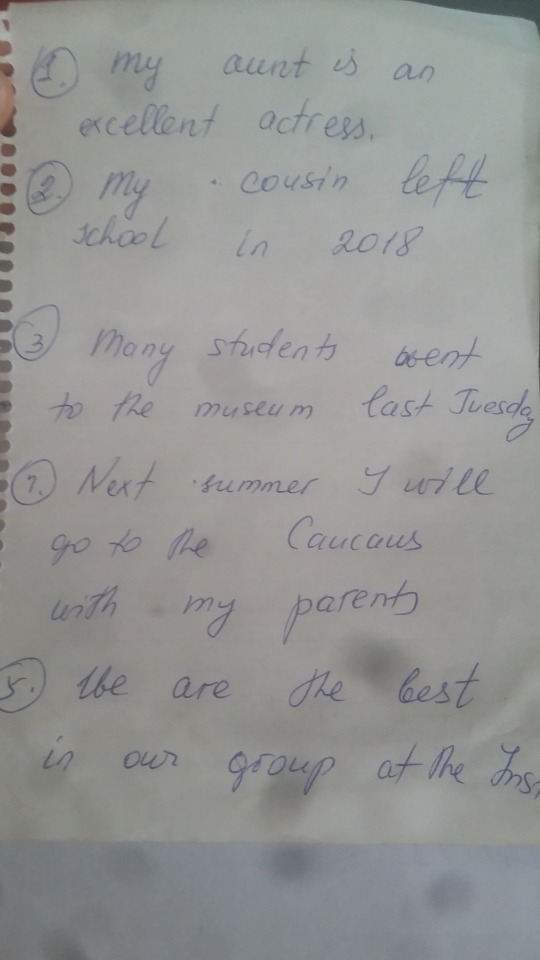 1. My aunt is an
excellent actress.
2. My cousin left
school in 2018
3 Many students went
to the museum last Tuesday
7. Next summer I will
go to the Caucaus
with my parents
5. We are the best
in our group at the